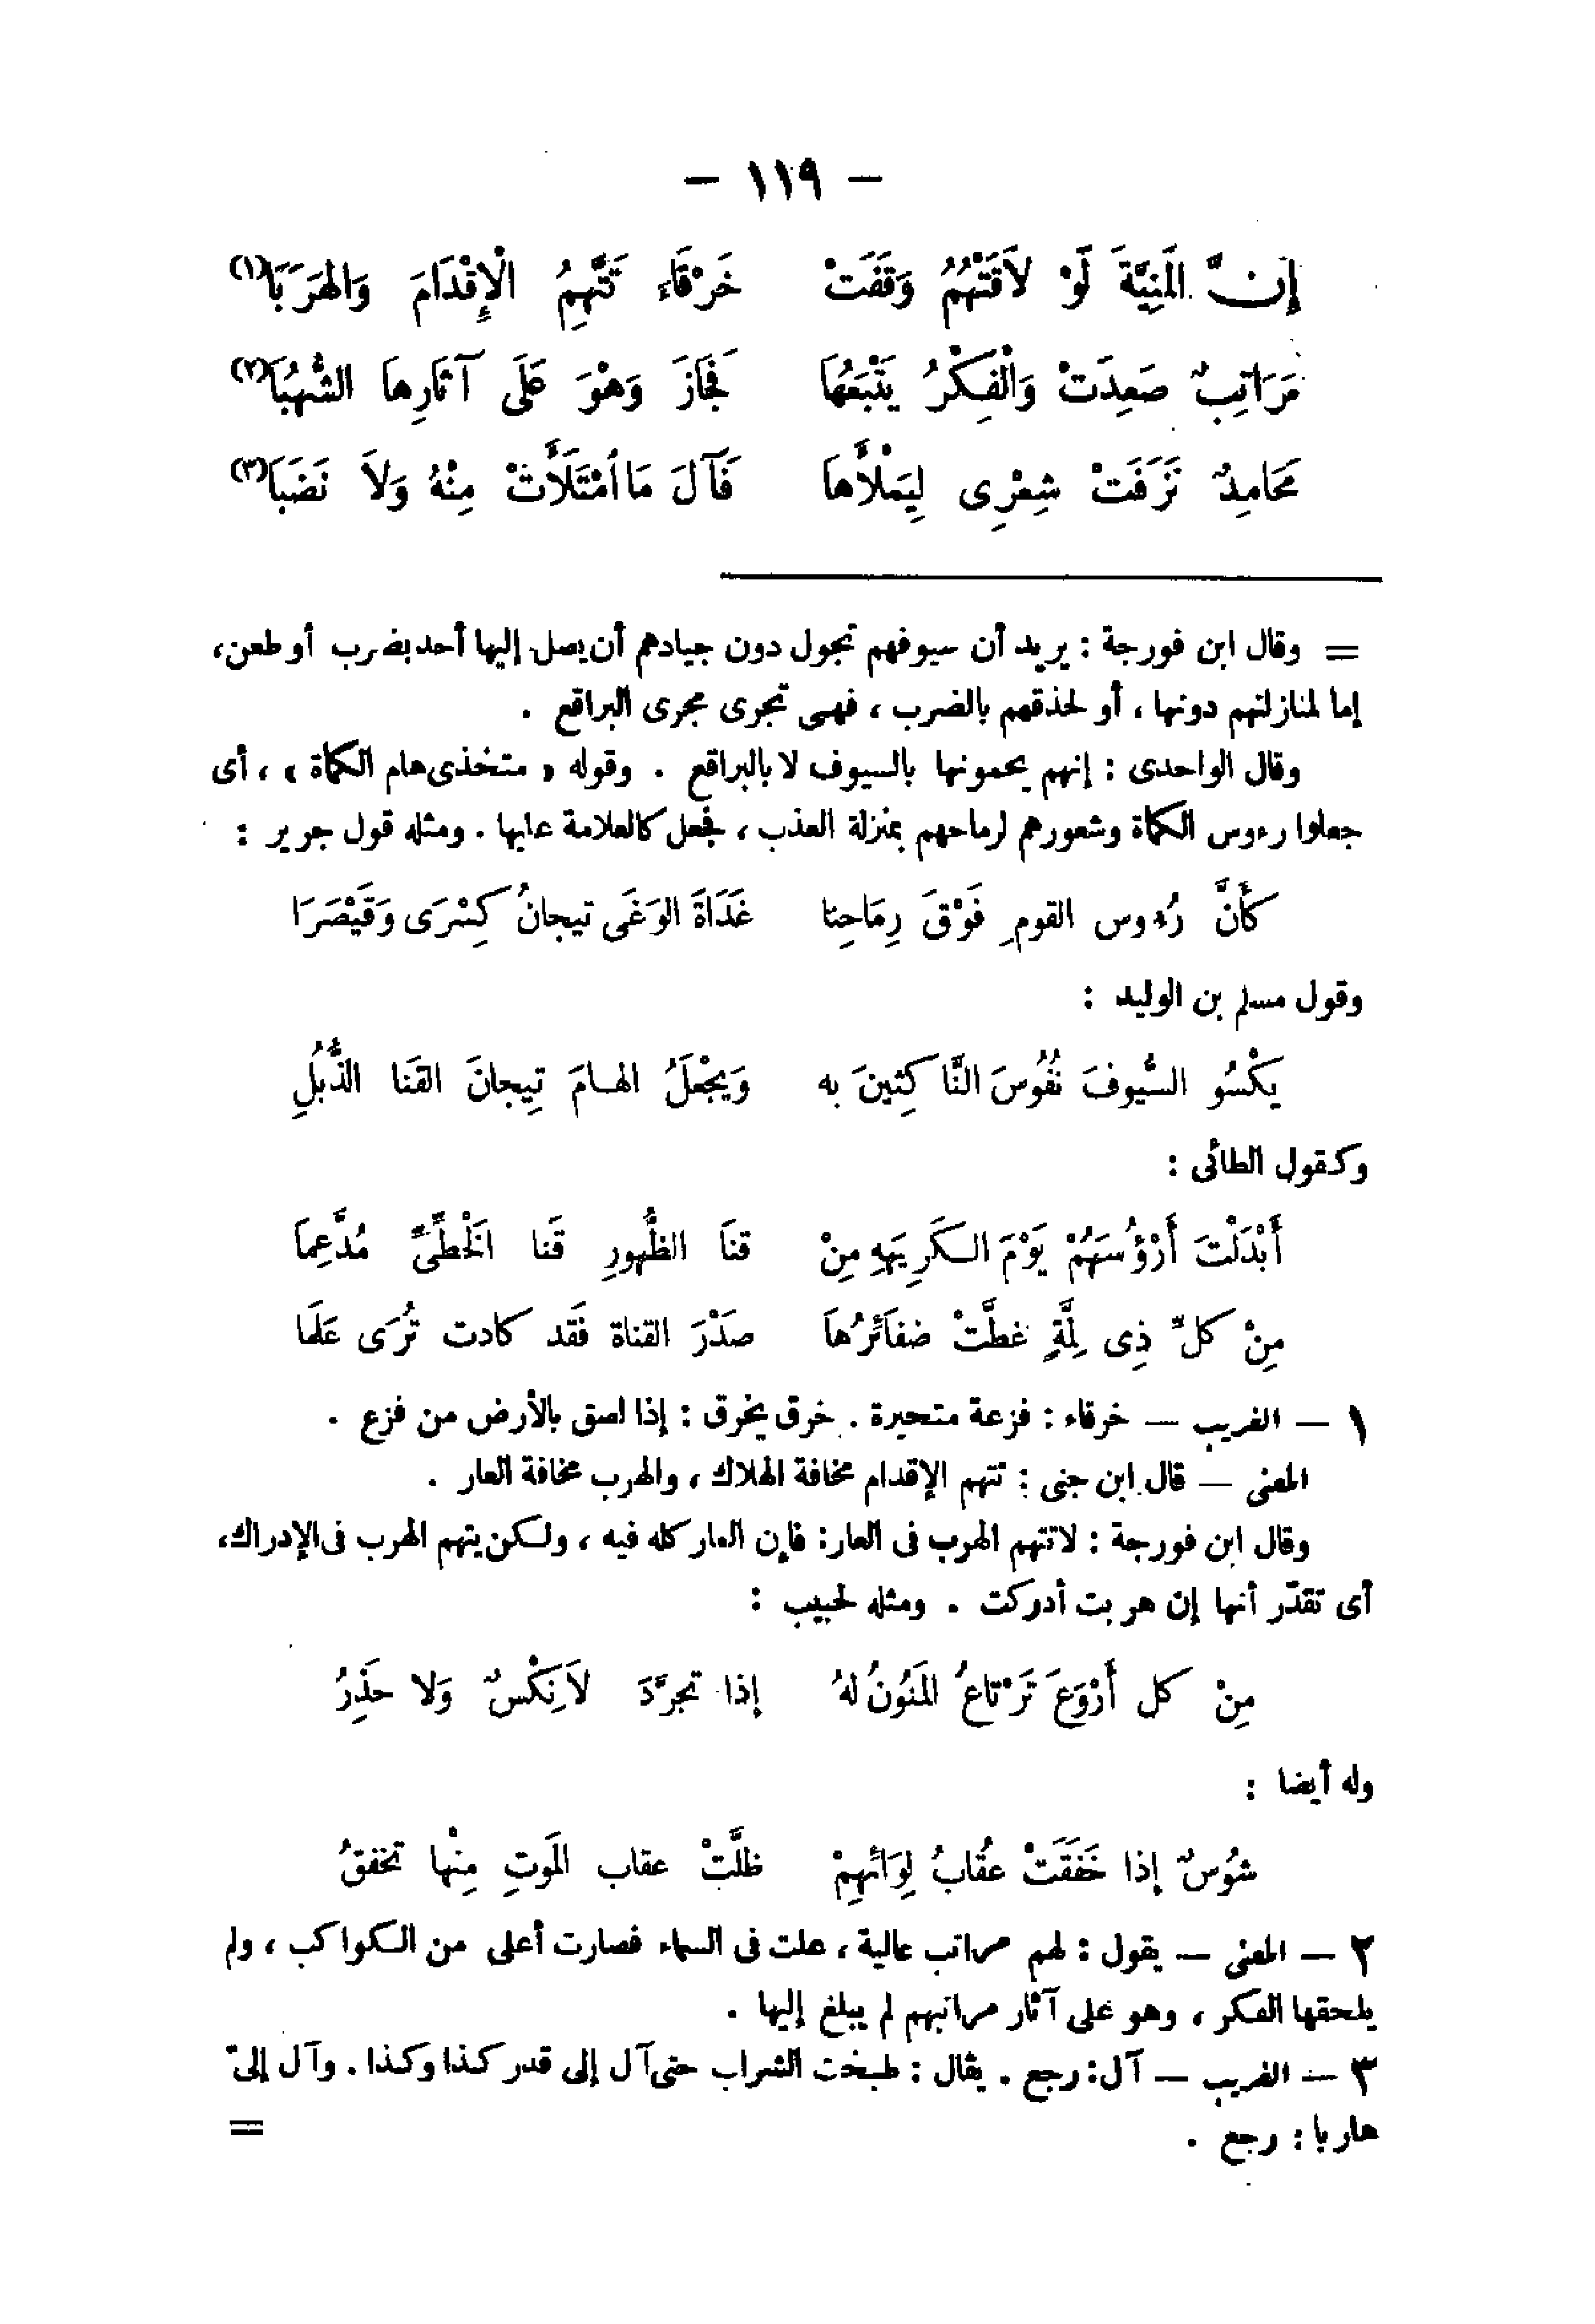 — ١١٩ —
إِنَّ الْمَنِيَّةَ لَوْ لَاقَتْهُمُ وَقَفَتْ خَرْقَاءَ تَتَّهِمُ الْإِقْدَامَ وَالْهَرَبَا(١)
مَرَاتِبٌ صَعِدَتْ وَالْفِكْرُ يَتْبَعُهَا فَجَازَ وَهْوَ عَلَى آثَارِهَا الشُّهُبَا(٢)
مَحَامِدٌ نَزَفَتْ شِعْرِى لِيَمْلَأَهَا فَآلَ مَا امْتَلَأَتْ مِنْهُ وَلَا نَضَبَا(٣)
= وقال ابن فورجة : يريد أن سيوفهم تجول دون جيادهم أن يصل إليها أحد بضرب أو طعن،
إما لمنازلتهم دونها ، أو لحذقهم بالضرب ، فهى تجرى مجرى البراقع .
وقال الواحدى : إنهم يحمونها بالسيوف لا بالبراقع . وقوله « متخذى هام الكماة » ، أى
جعلوا رءوس الكماة وشعورهم لرماحهم بمنزلة العذب ، فجعل كالعلامة عليها . ومثله قول جرير :
كَأَنَّ رُءوس القومِ فَوْقَ رِمَاحِنا غَدَاةَ الوَغَى تيجانُ كِسْرَى وَقَيْصَرَا
وقول مسلم بن الوليد :
يَكْسُو السُّيوفَ نُفُوسَ النَّاكِثينَ به وَيَجْعَلُ الهامَ تِيجانَ القَنا الذُّبُلِ
وكقول الطائى :
أَبْدَلْتَ أَرْؤُسَهُمْ يَوْمَ الكَرِيهَهِ مِنْ قنَا الظُّهورِ قَنا الخَطِّىِّ مُدَّعِما
مِنْ كلِّ ذِى لِمَّةٍ غطَّتْ ضفائرُهَا صدْرَ القناة فَقد كادت تُرَى عَلَما
١ — الغريب — خرقاء : فزعة متحيرة . خرق يخرق : إذا لصق بالأرض من فزع .
المعنى — قال ابن جنى : تتهم الإقدام مخافة الهلاك ، والهرب مخافة العار .
وقال ابن فورجة : لا تتهم الهرب فى العار : فإن العار كله فيه ، ولكن يتهم الهرب فى الإدراك،
أى تقدّر أنها إن هربت أدركت . ومثله لحبيب :
مِنْ كل أَرْوَعَ تَرْتاعُ المَنُونُ لهُ إذا تجرَّدَ لَا نِكْسٌ وَلا حَذِرُ
وله أيضا :
شوُسٌ إذا خَفَقَتْ عُقابُ لِوَائهِمْ ظلَّتْ عقاب المَوتِ مِنْها تخفقُ
٢ — المعنى — يقول : لهم مراتب عالية ، علت فى السماء فصارت أعلى من الكواكب ، ولم
يلحقها الفكر ، وهو على آثار مراتبهم لم يبلغ إليها .
٣ — الغريب — آل : رجع . يقال : طبخت الشراب حتى آل إلى قدر كذا وكذا . وآل إلىّ
هاربا : رجع . =